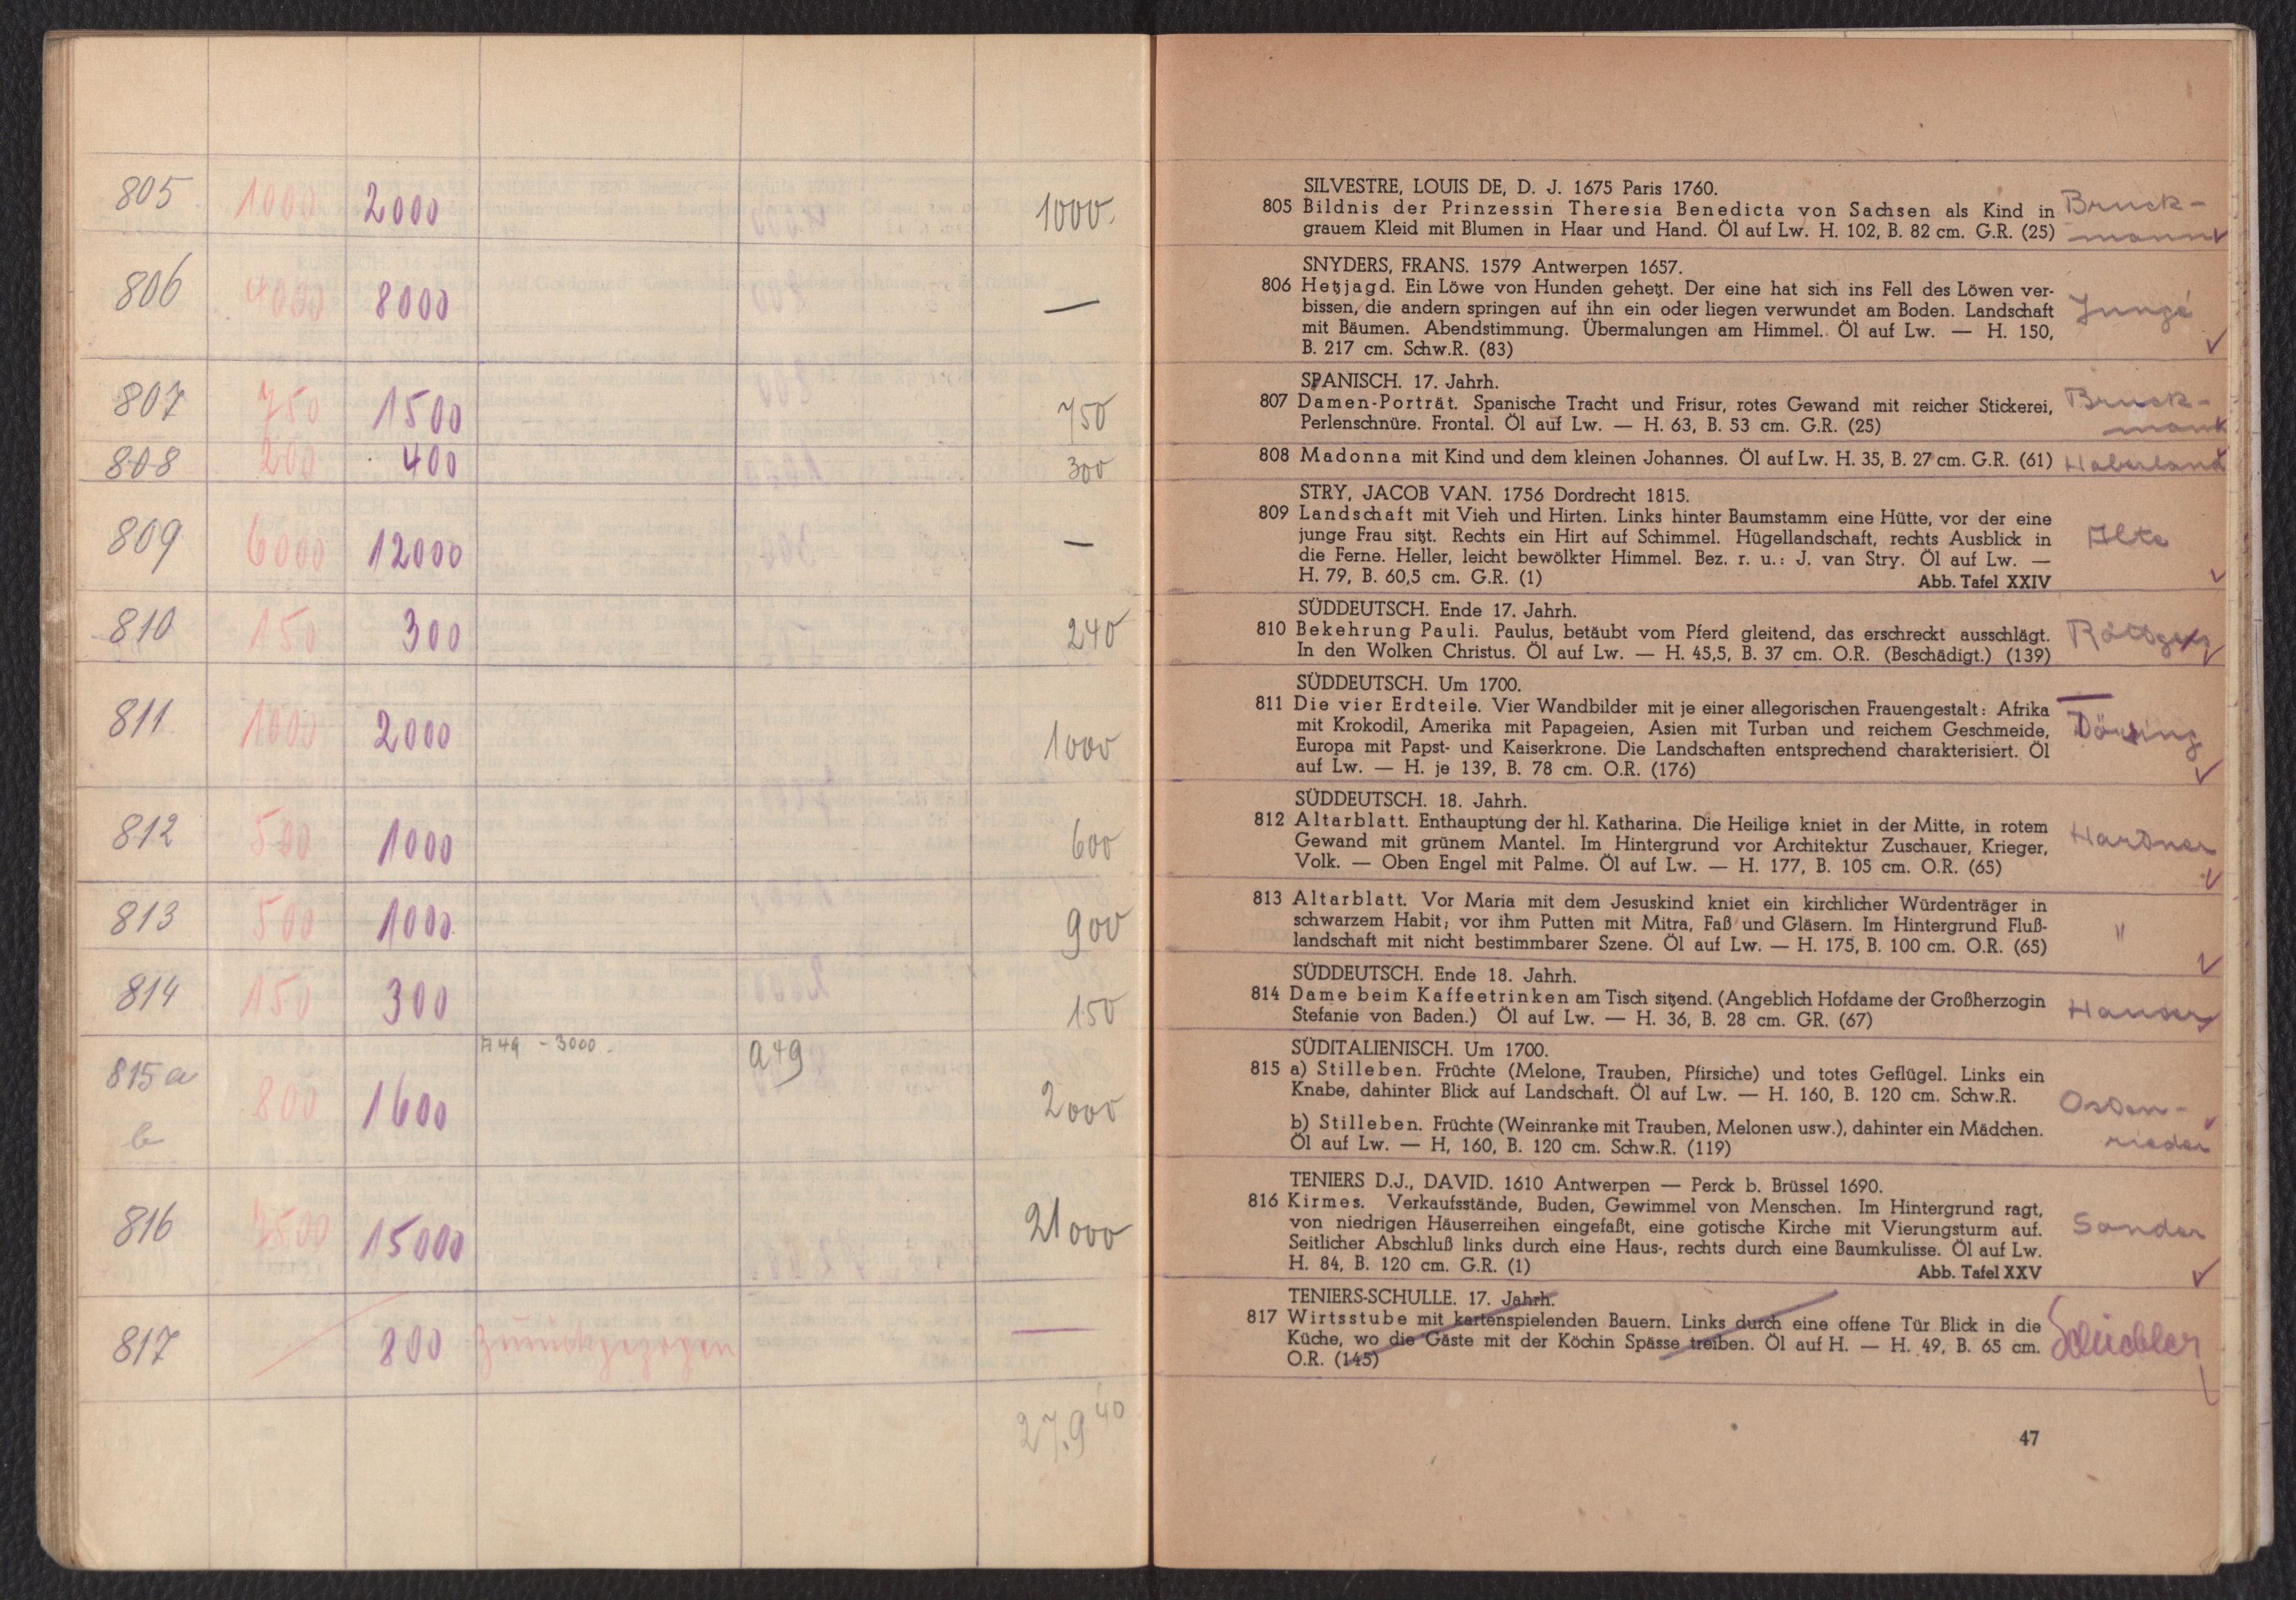 805 1000 2000 1000.
806 4000 8000 —
807 750 1500 750
808 200 400 300
809 6000 12000 —
810 150 300 240
811. 1000 2000 1000
812 500 1000 600
813 500 1000 900
814 150 300 150
A 49 - 3000. a 49
815 a 800 1600 2000
b
816 7500 15000 21000
817 800 Zurückgezogen —
27.9 40
SILVESTRE, LOUIS DE, D. J. 1675 Paris 1760.
805 Bildnis der Prinzessin Theresia Benedicta von Sachsen als Kind in Bruck-
grauem Kleid mit Blumen in Haar und Hand. Öl auf Lw. H. 102, B. 82 cm. G.R. (25) mann
SNYDERS, FRANS. 1579 Antwerpen 1657.
806 Hetzjagd. Ein Löwe von Hunden gehetzt. Der eine hat sich ins Fell des Löwen ver-
bissen, die andern springen auf ihn ein oder liegen verwundet am Boden. Landschaft Junge
mit Bäumen. Abendstimmung. Übermalungen am Himmel. Öl auf Lw. — H. 150,
B. 217 cm. Schw.R. (83)
SPANISCH. 17. Jahrh.
807 Damen-Porträt. Spanische Tracht und Frisur, rotes Gewand mit reicher Stickerei, Bruck-
Perlenschnüre. Frontal. Öl auf Lw. — H. 63, B. 53 cm. G.R. (25) mann
808 Madonna mit Kind und dem kleinen Johannes. Öl auf Lw. H. 35, B. 27 cm. G.R. (61) Haberland
STRY, JACOB VAN. 1756 Dordrecht 1815.
809 Landschaft mit Vieh und Hirten. Links hinter Baumstamm eine Hütte, vor der eine
junge Frau sitzt. Rechts ein Hirt auf Schimmel. Hügellandschaft, rechts Ausblick in Alte
die Ferne. Heller, leicht bewölkter Himmel. Bez. r. u.: J. van Stry. Öl auf Lw. —
H. 79, B. 60,5 cm. G.R. (1) Abb. Tafel XXIV
SÜDDEUTSCH. Ende 17. Jahrh.
810 Bekehrung Pauli. Paulus, betäubt vom Pferd gleitend, das erschreckt ausschlägt. Röttgers
In den Wolken Christus. Öl auf Lw. — H. 45,5, B. 37 cm. O.R. (Beschädigt.) (139)
SÜDDEUTSCH. Um 1700.
811 Die vier Erdteile. Vier Wandbilder mit je einer allegorischen Frauengestalt: Afrika
mit Krokodil, Amerika mit Papageien, Asien mit Turban und reichem Geschmeide, Döring
Europa mit Papst- und Kaiserkrone. Die Landschaften entsprechend charakterisiert. Öl
auf Lw. — H. je 139, B. 78 cm. O.R. (176)
SÜDDEUTSCH. 18. Jahrh.
812 Altarblatt. Enthauptung der hl. Katharina. Die Heilige kniet in der Mitte, in rotem Hardner
Gewand mit grünem Mantel. Im Hintergrund vor Architektur Zuschauer, Krieger,
Volk. — Oben Engel mit Palme. Öl auf Lw. — H. 177, B. 105 cm. O.R. (65)
813 Altarblatt. Vor Maria mit dem Jesuskind kniet ein kirchlicher Würdenträger in
schwarzem Habit; vor ihm Putten mit Mitra, Faß und Gläsern. Im Hintergrund Fluß- "
landschaft mit nicht bestimmbarer Szene. Öl auf Lw. — H. 175, B. 100 cm. O.R. (65)
SÜDDEUTSCH. Ende 18. Jahrh.
814 Dame beim Kaffeetrinken am Tisch sitzend. (Angeblich Hofdame der Großherzogin Hauser
Stefanie von Baden.) Öl auf Lw. — H. 36, B. 28 cm. GR. (67)
SÜDITALIENISCH. Um 1700.
815 a) Stilleben. Früchte (Melone, Trauben, Pfirsiche) und totes Geflügel. Links ein
Knabe, dahinter Blick auf Landschaft. Öl auf Lw. — H. 160, B. 120 cm. Schw.R. Osten-
b) Stilleben. Früchte (Weinranke mit Trauben, Melonen usw.), dahinter ein Mädchen. rieder
Öl auf Lw. — H, 160, B. 120 cm. Schw.R. (119)
TENIERS D.J., DAVID. 1610 Antwerpen — Perck b. Brüssel 1690.
816 Kirmes. Verkaufsstände, Buden, Gewimmel von Menschen. Im Hintergrund ragt,
von niedrigen Häuserreihen eingefaßt, eine gotische Kirche mit Vierungsturm auf. Sander
Seitlicher Abschluß links durch eine Haus-, rechts durch eine Baumkulisse. Öl auf Lw.
H. 84, B. 120 cm. G.R. (1) Abb. Tafel XXV
TENIERS-SCHULLE. 17. Jahrh.
817 Wirtsstube mit kartenspielenden Bauern. Links durch eine offene Tür Blick in die
Küche, wo die Gäste mit der Köchin Spässe treiben. Öl auf H. — H. 49, B. 65 cm.
O.R. (145)
47